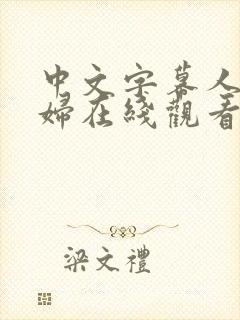 中文字幕人
婦在綫觀看
梁文禮